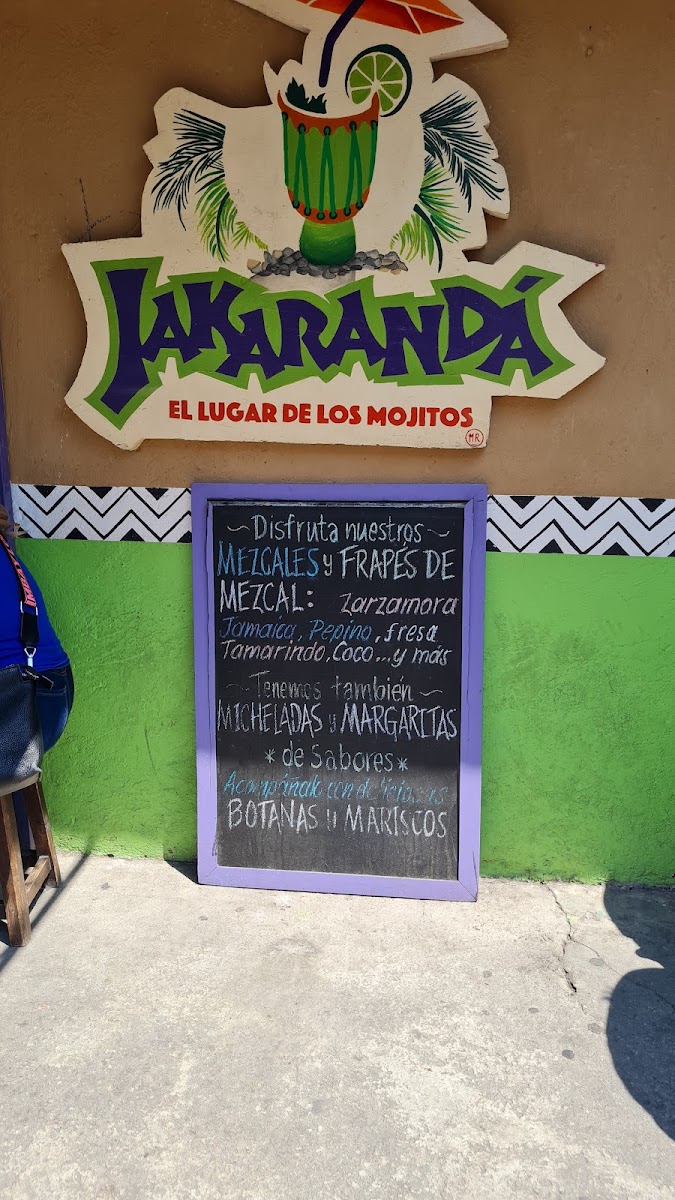 JAKARANDÁ
EL LUGAR DE LOS MOJITOS
MR
~Disfruta nuestros~
MEZCALES y FRAPÉS DE
MEZCAL: Zarzamora
Jamaica, Pepino, fresa
Tamarindo, Coco...y más
~Tenemos también~
MICHELADAS y MARGARITAS
*de Sabores*
Acompáñalo con deliciosas
BOTANAS y MARISCOS